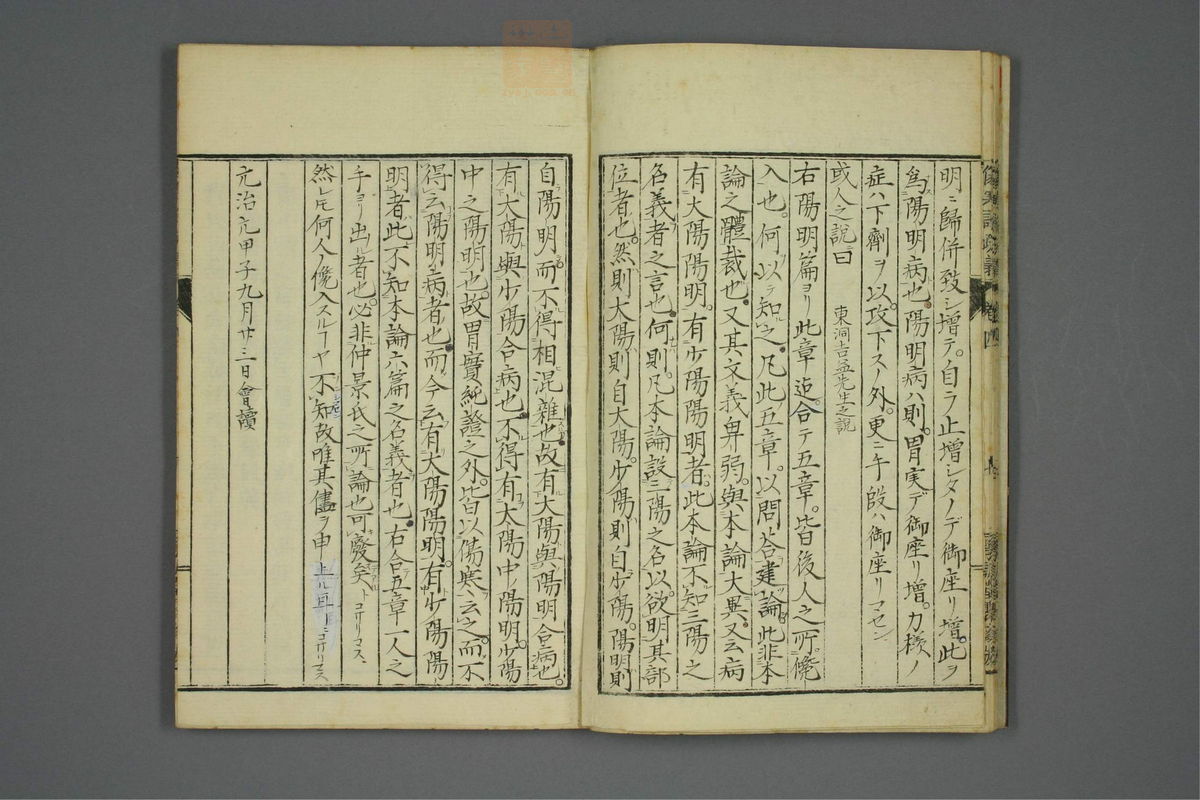 明ニ歸併致シ增テ。自ラ止增シタノデ御座リ增。此ヲ
爲陽明病也。陽明病ハ則。胃実デ御座リ增。カ樣ノ
症ハ下劑ヲ以。攻下スノ外。更ニ手段ハ御座リマセン
或人之說曰 東洞吉益先生之說
右陽明篇ヨリ此章迄。合テ五章。皆後人之所。儳
入也。何以テ知之。凡此五章。以問答建論。此非本
論之體裁也。又其文義卑弱。與本論大異。又云病
有大陽陽明。有少陽陽明者。此本論不知三陽之
名義者之言也。何則。凡本論設三陽之名。以欲明其部
位者也。然則大陽則自大陽。少陽則自少陽。陽明則
自陽明。而不得相混雜也。故有大陽與陽明合病也。
有大陽與少陽合病也。不得有太陽中ノ陽明。少陽
中之陽明也。故胃實純證之外。皆以傷寒云之。而不
得云陽明病者也。而今云有大陽陽明。有少陽陽
明者。此不知本論六篇之名義者也。右合五章一人之
手ヨリ出ル者也。必非仲景氏之所論也。可廢矣トコザリマス、
然レ𪜈何人ノ儳入スルヿヤ不知故唯其儘ヲ申
元治元甲子九月廿三日會讀